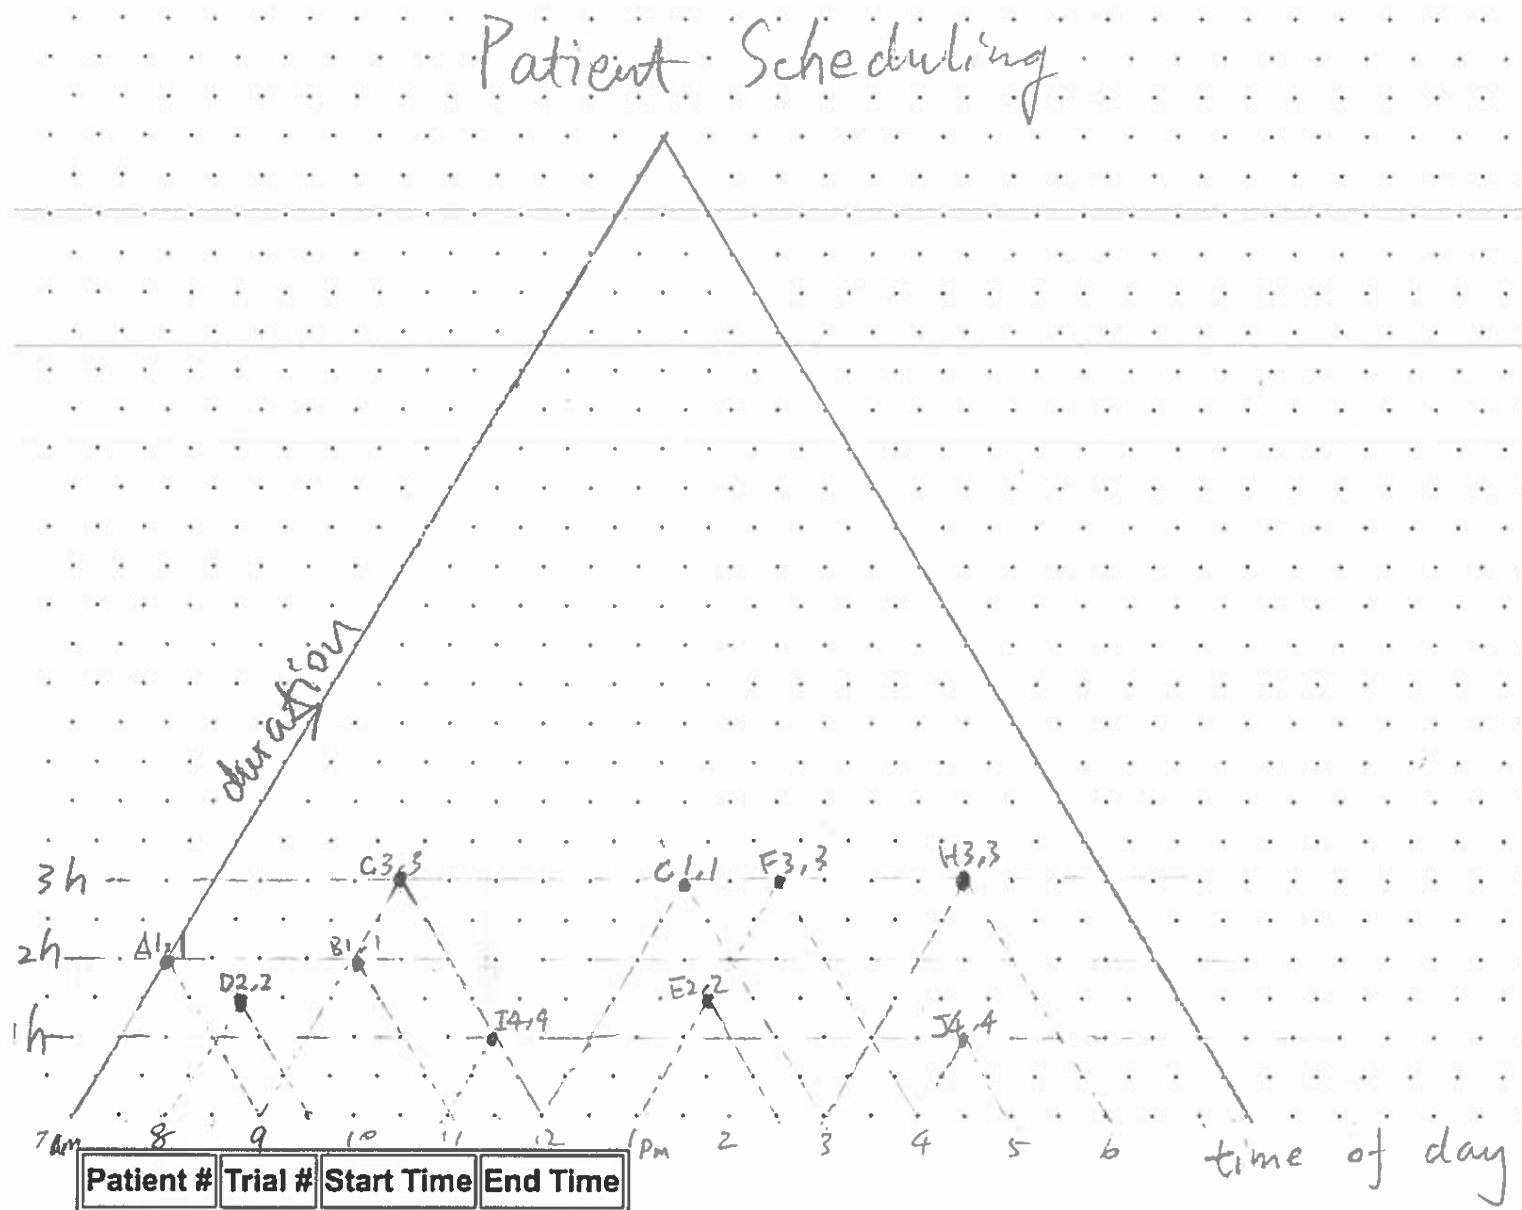 Patient Scheduling
duration
3h G3,3 C1,1 F3,3 H3,3
2h A1,1 B1,1
D2,2 E2,2
1h I4,4 J4,4
7am 8 9 10 11 12 1pm 2 3 4 5 6 time of day
Patient # Trial # Start Time End Time